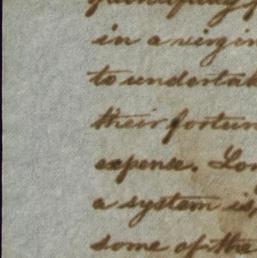 in a virgin
to undertak
their fortun
expense. Lon
a system is,
some of the